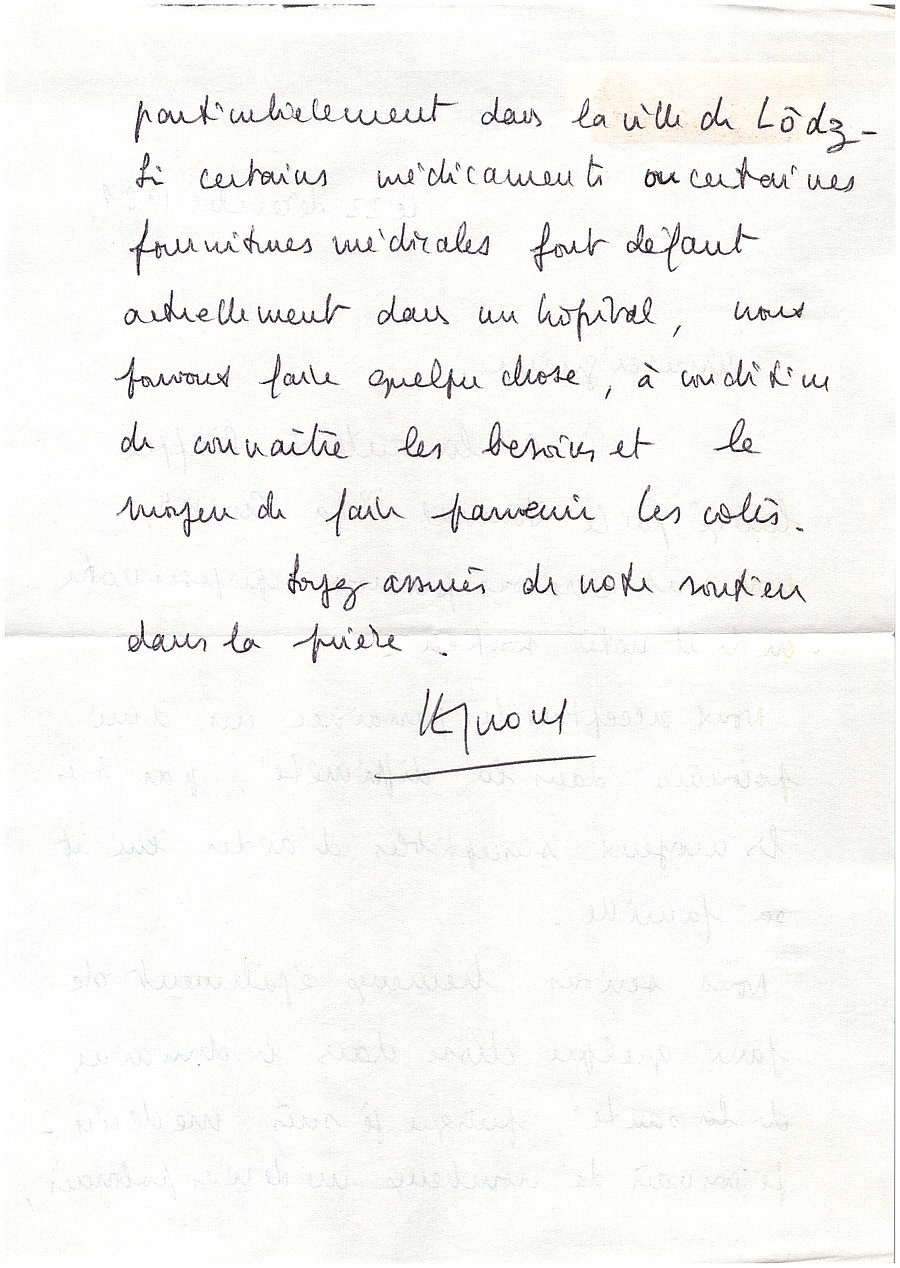 particulièrement dans la ville de Lôdz -
Si certains médicaments ou certaines
fournitures médicales font défaut
actuellement dans un hôpital, nous
pouvons faire quelque chose, à condition
de connaître les besoins et le
moyen de faire parvenir les colis.
Soyez assurés de notre soutien
dans la prière.